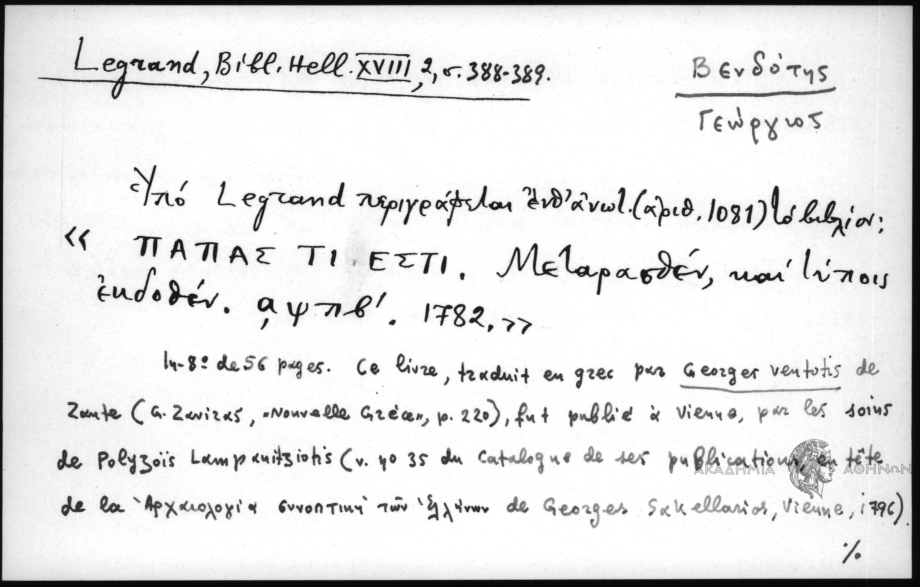 Legrand, Bibl. Hell. XVIII, 2, σ. 388-389.
Βενδότης
Γεώργιος
Ὑπό Legrand περιγράφεται ἐνθ' ἀνωτ. (ἀριθ. 1081) τό βιβλίον:
« ΠΑΠΑΣ ΤΙ ΕΣΤΙ. Μεταφρασθέν, καί τύποις
ἐκδοθέν. αψπβ'. 1782.»
In-8º de 56 pages. Ce livre, traduit en grec par Georges Ventotis de
Zante (G. Zaviras, „Nouvelle Grèce", p. 220), fut publié à Vienne, par les soins
de Polyzoïs Lampanitziotis (v. nº 35 du Catalogue de ses publications, en tête
ΑΚΑΔΗΜΙΑ ΑΘΗΝΩΝ
de la Ἀρχαιολογία συνοπτική τῶν Ἑλλήνων de Georges Sakellarios, Vienne, 1796).
%